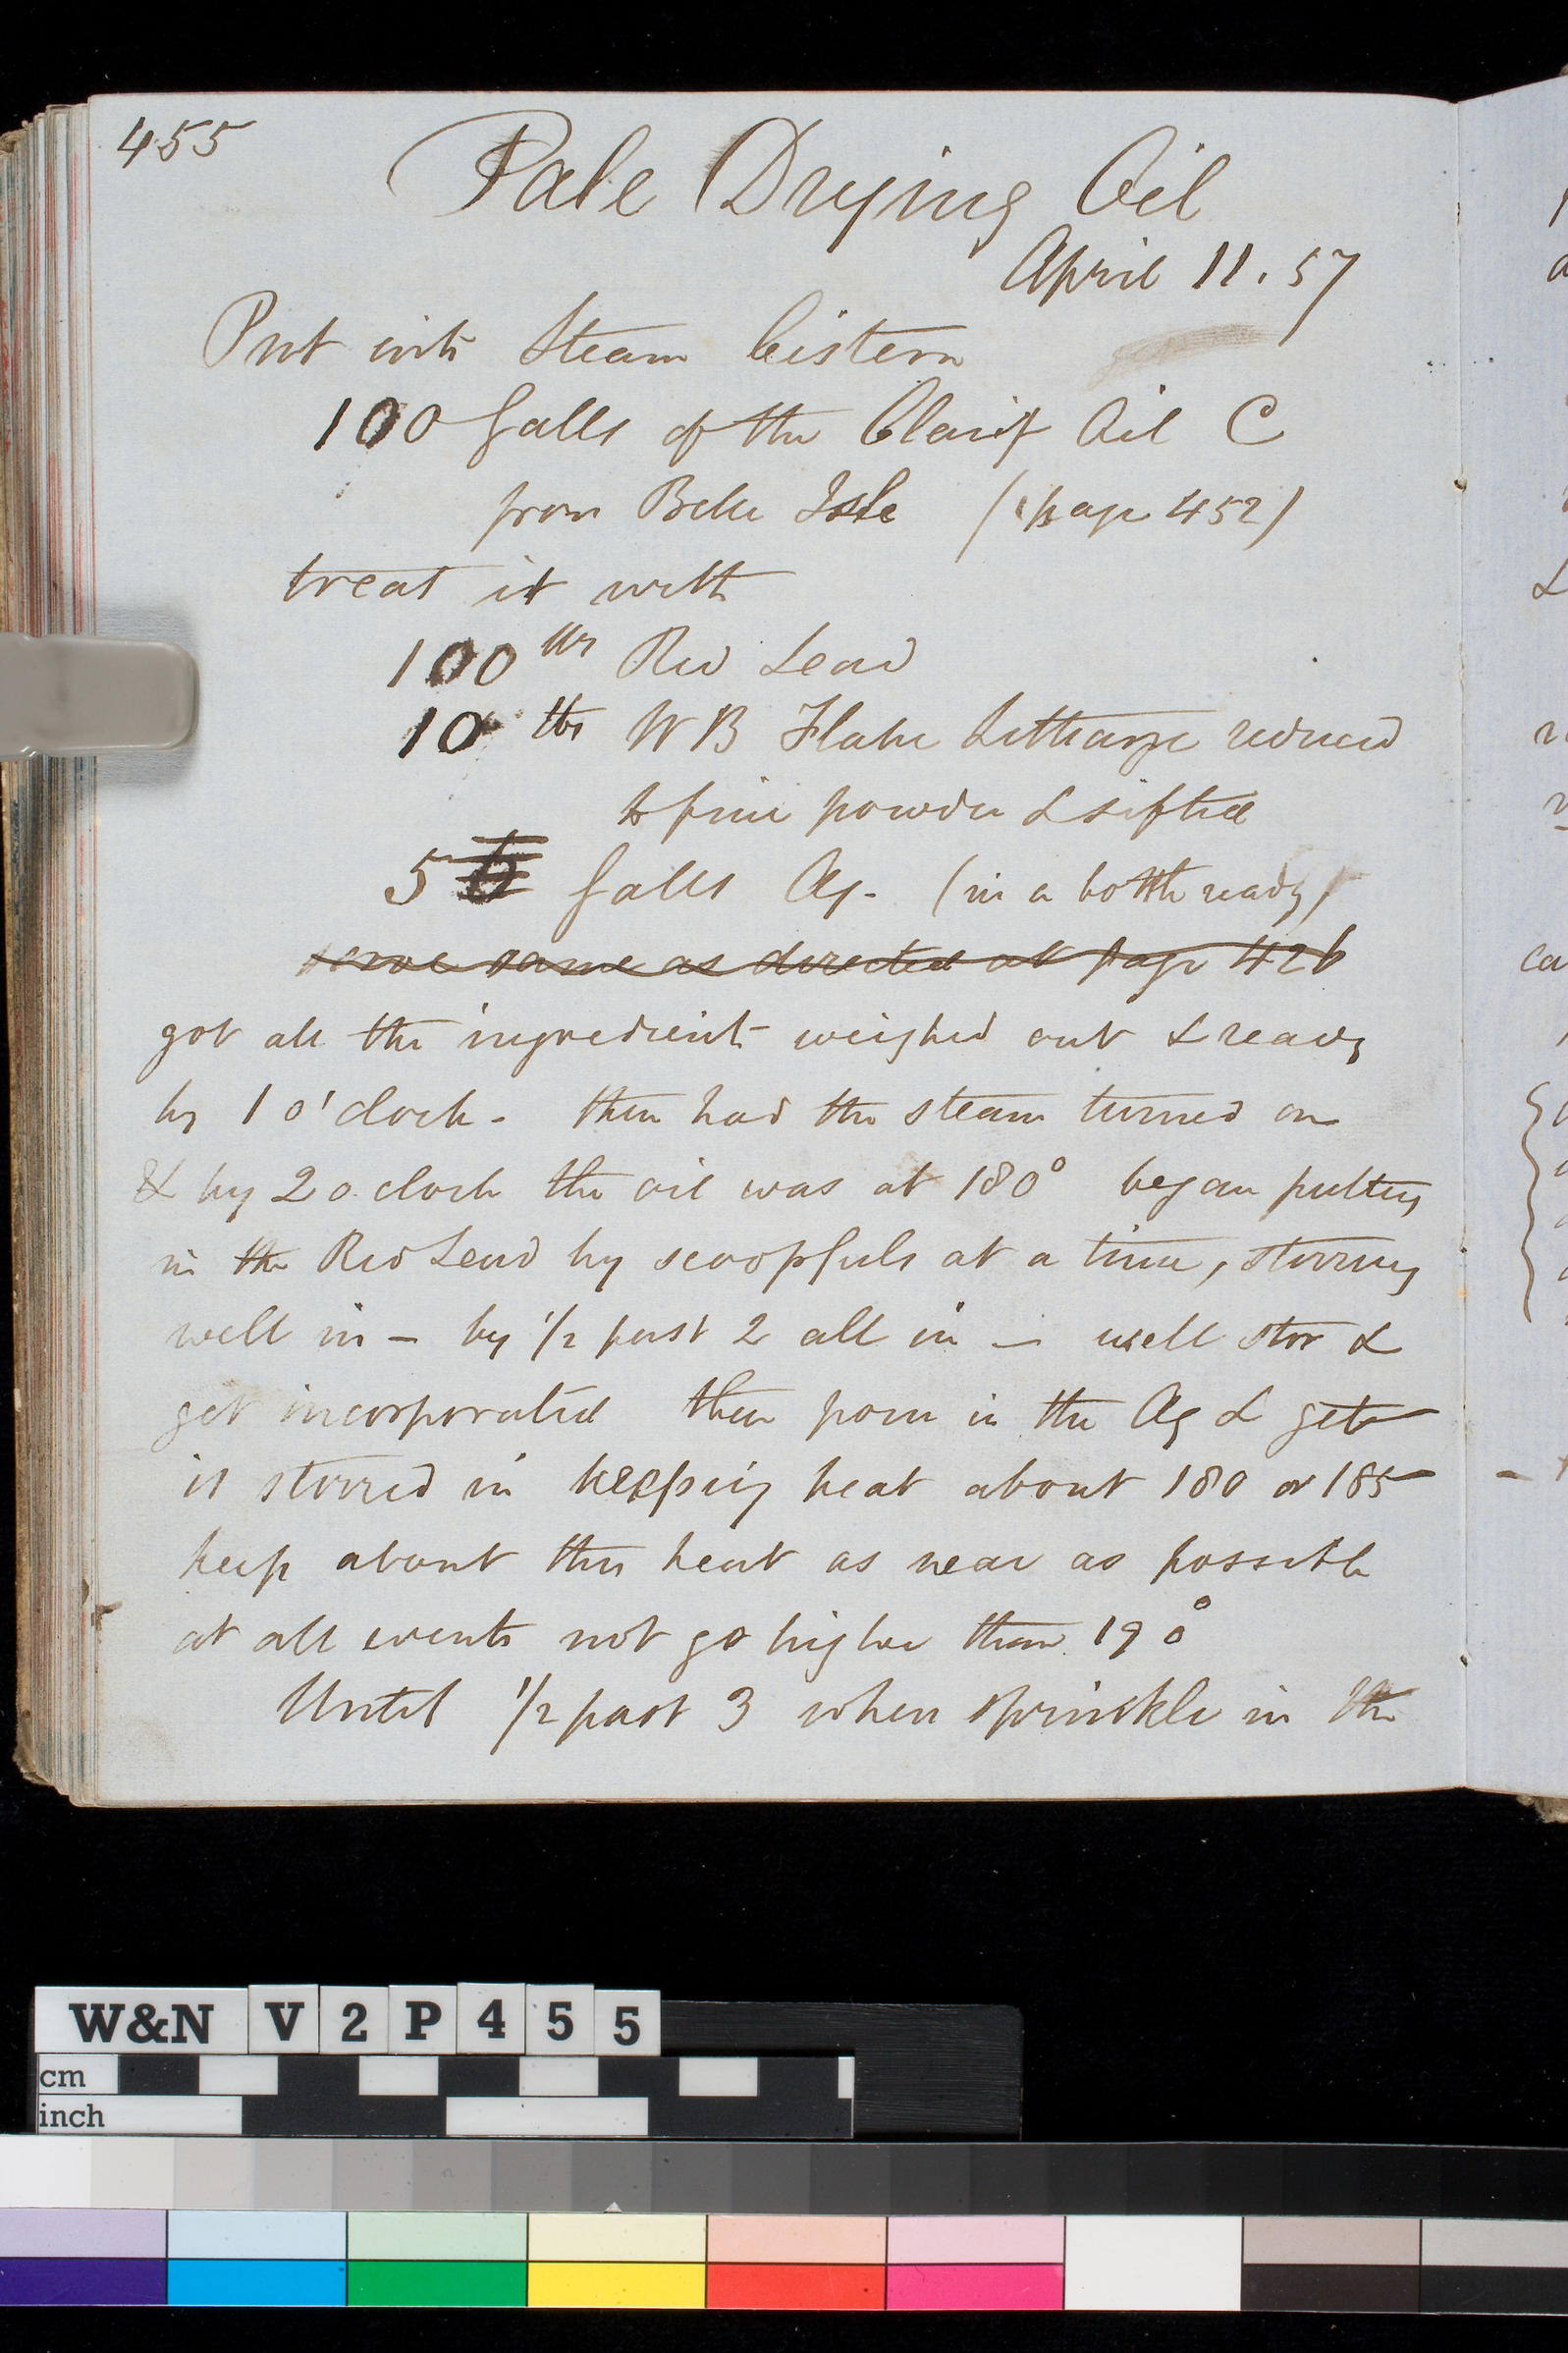 455
Pale Drying Oil
April 11. 57
Put into Steam Cistern
100 Galls of the Clarif Oil C
from Belle Isle (page 452)
treat it with
100 lbs Red Lead
10 lbs W B Flake Litharge reduced
to fine powder & sifted
5 Galls Aq. (in a bottle ready)
same as directed at page 426
got all the ingredients weighed out & ready
by 1 o'clock - then had the steam turned on
& by 2 o.clock the oil was at 180° began putting
in the Red Lead by scoopfuls at a time, stirring
well in - by 1/2 past 2 all in - well stir &
get incorporated then pour in the Aq & get
it stirred in keeping heat about 180 or 185
keep about this heat as near as possible
at all events not go higher than 190°
Until 1/2 past 3 when sprinkle in the
W&N V2P455
cm
inch